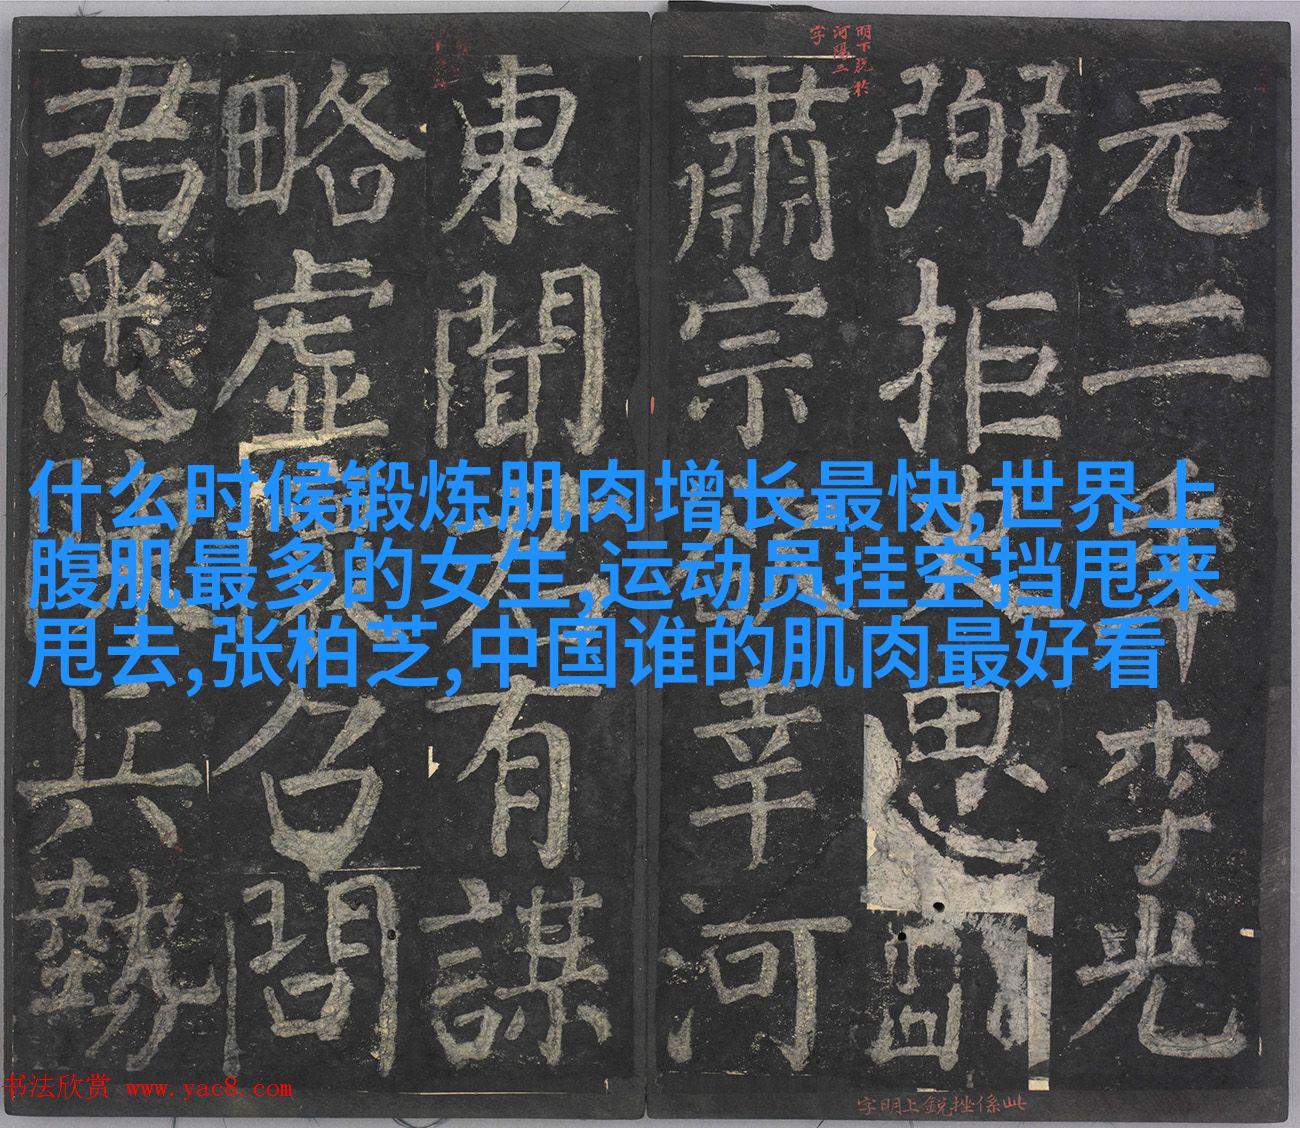 明下脫於
河陽二
字
元二年李光
弼拒思
肅宗幸河
東聞有謀
略虛召問
君悉兵勢
什么时候锻炼肌肉增长最快,世界上
腹肌最多的女生,运动员挂空挡甩来
甩去,张柏芝,中国谁的肌肉最好看
此係挫銳上明字
书法欣赏 www.yac8.com